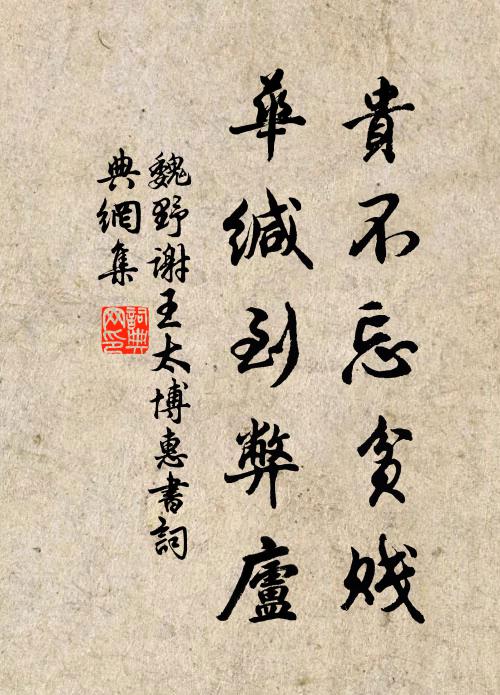 貴不忘貧賤
華緘到弊廬
魏野謝王太博惠書詞
典網集
詞典網印